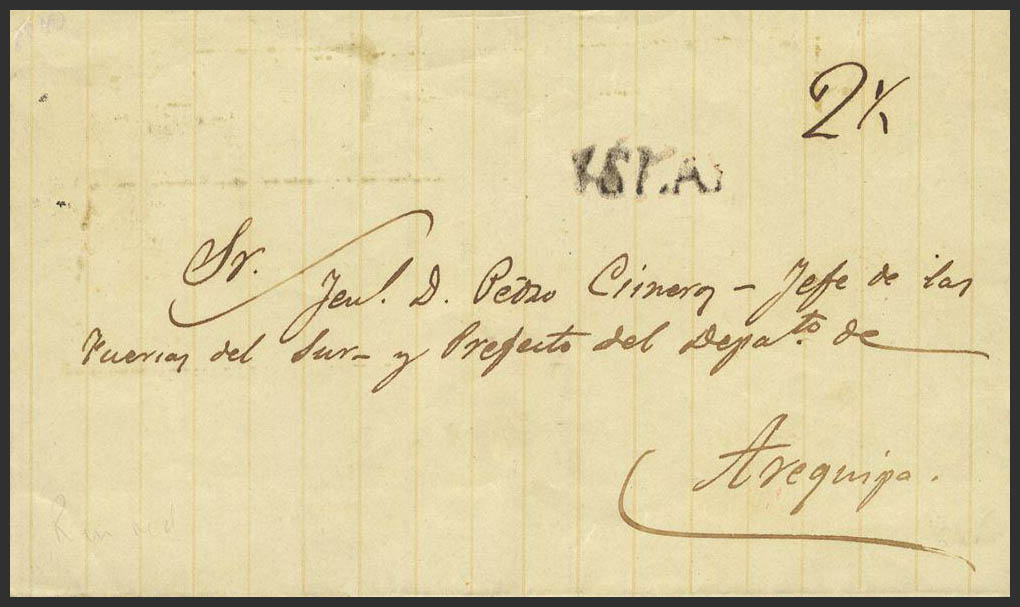 2 ½
Sr.
Jenl. D. Pedro Cisneros - Jefe de las
Fuerzas del Sur - y Prefecto del Depato. de
Arequipa.